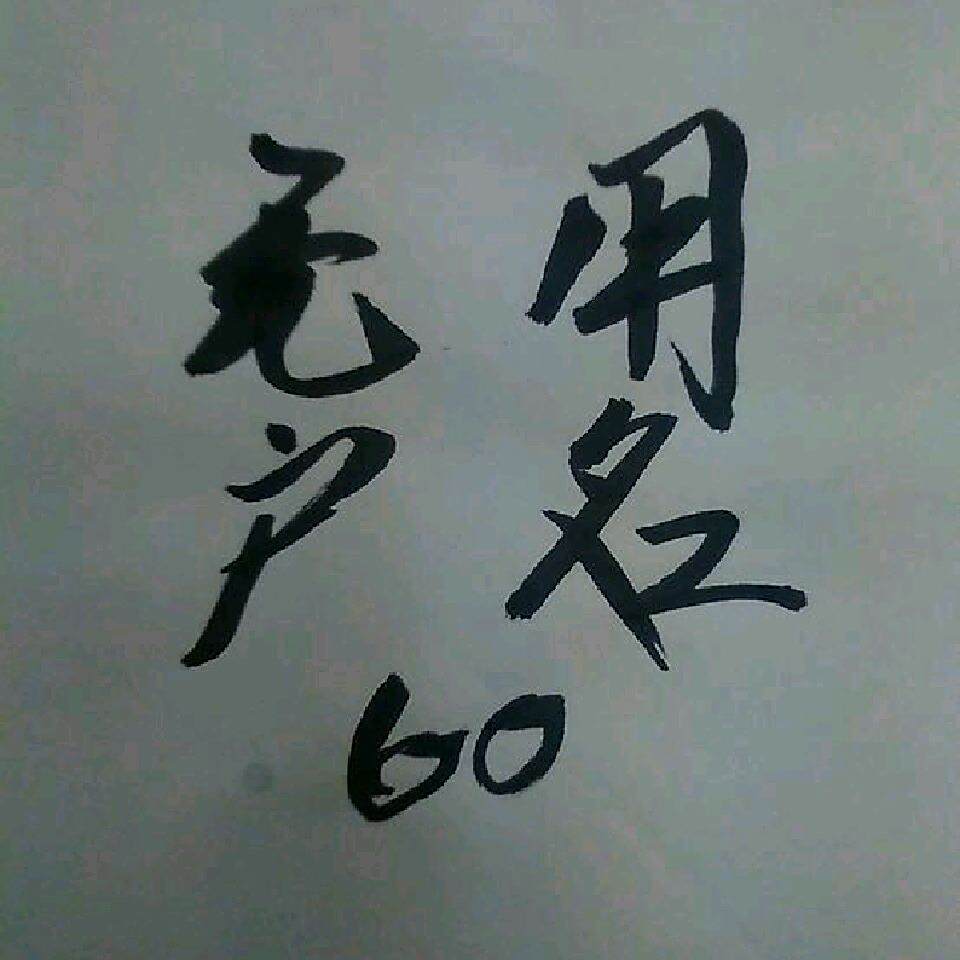 无用
户名
60